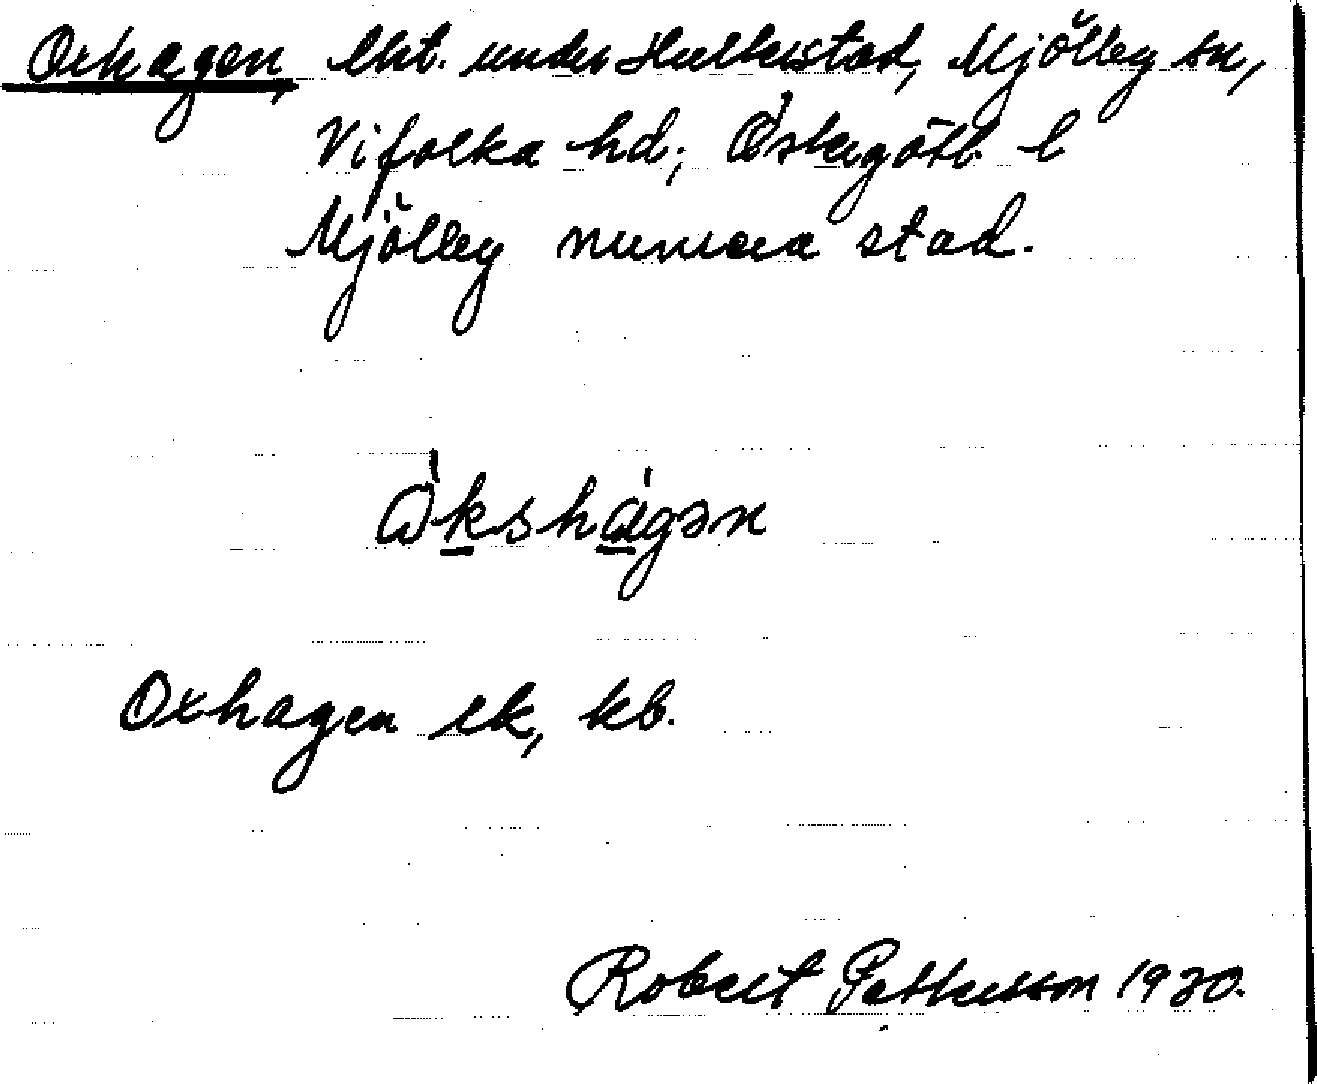 Oxhagen, lht. under Hulterstad, Mjölby sn,
Vifolka hd; Östergötl. l
Mjölby numera stad.
Òkshágən
Oxhagen ek, kb.
Robert Pettersson 1930.